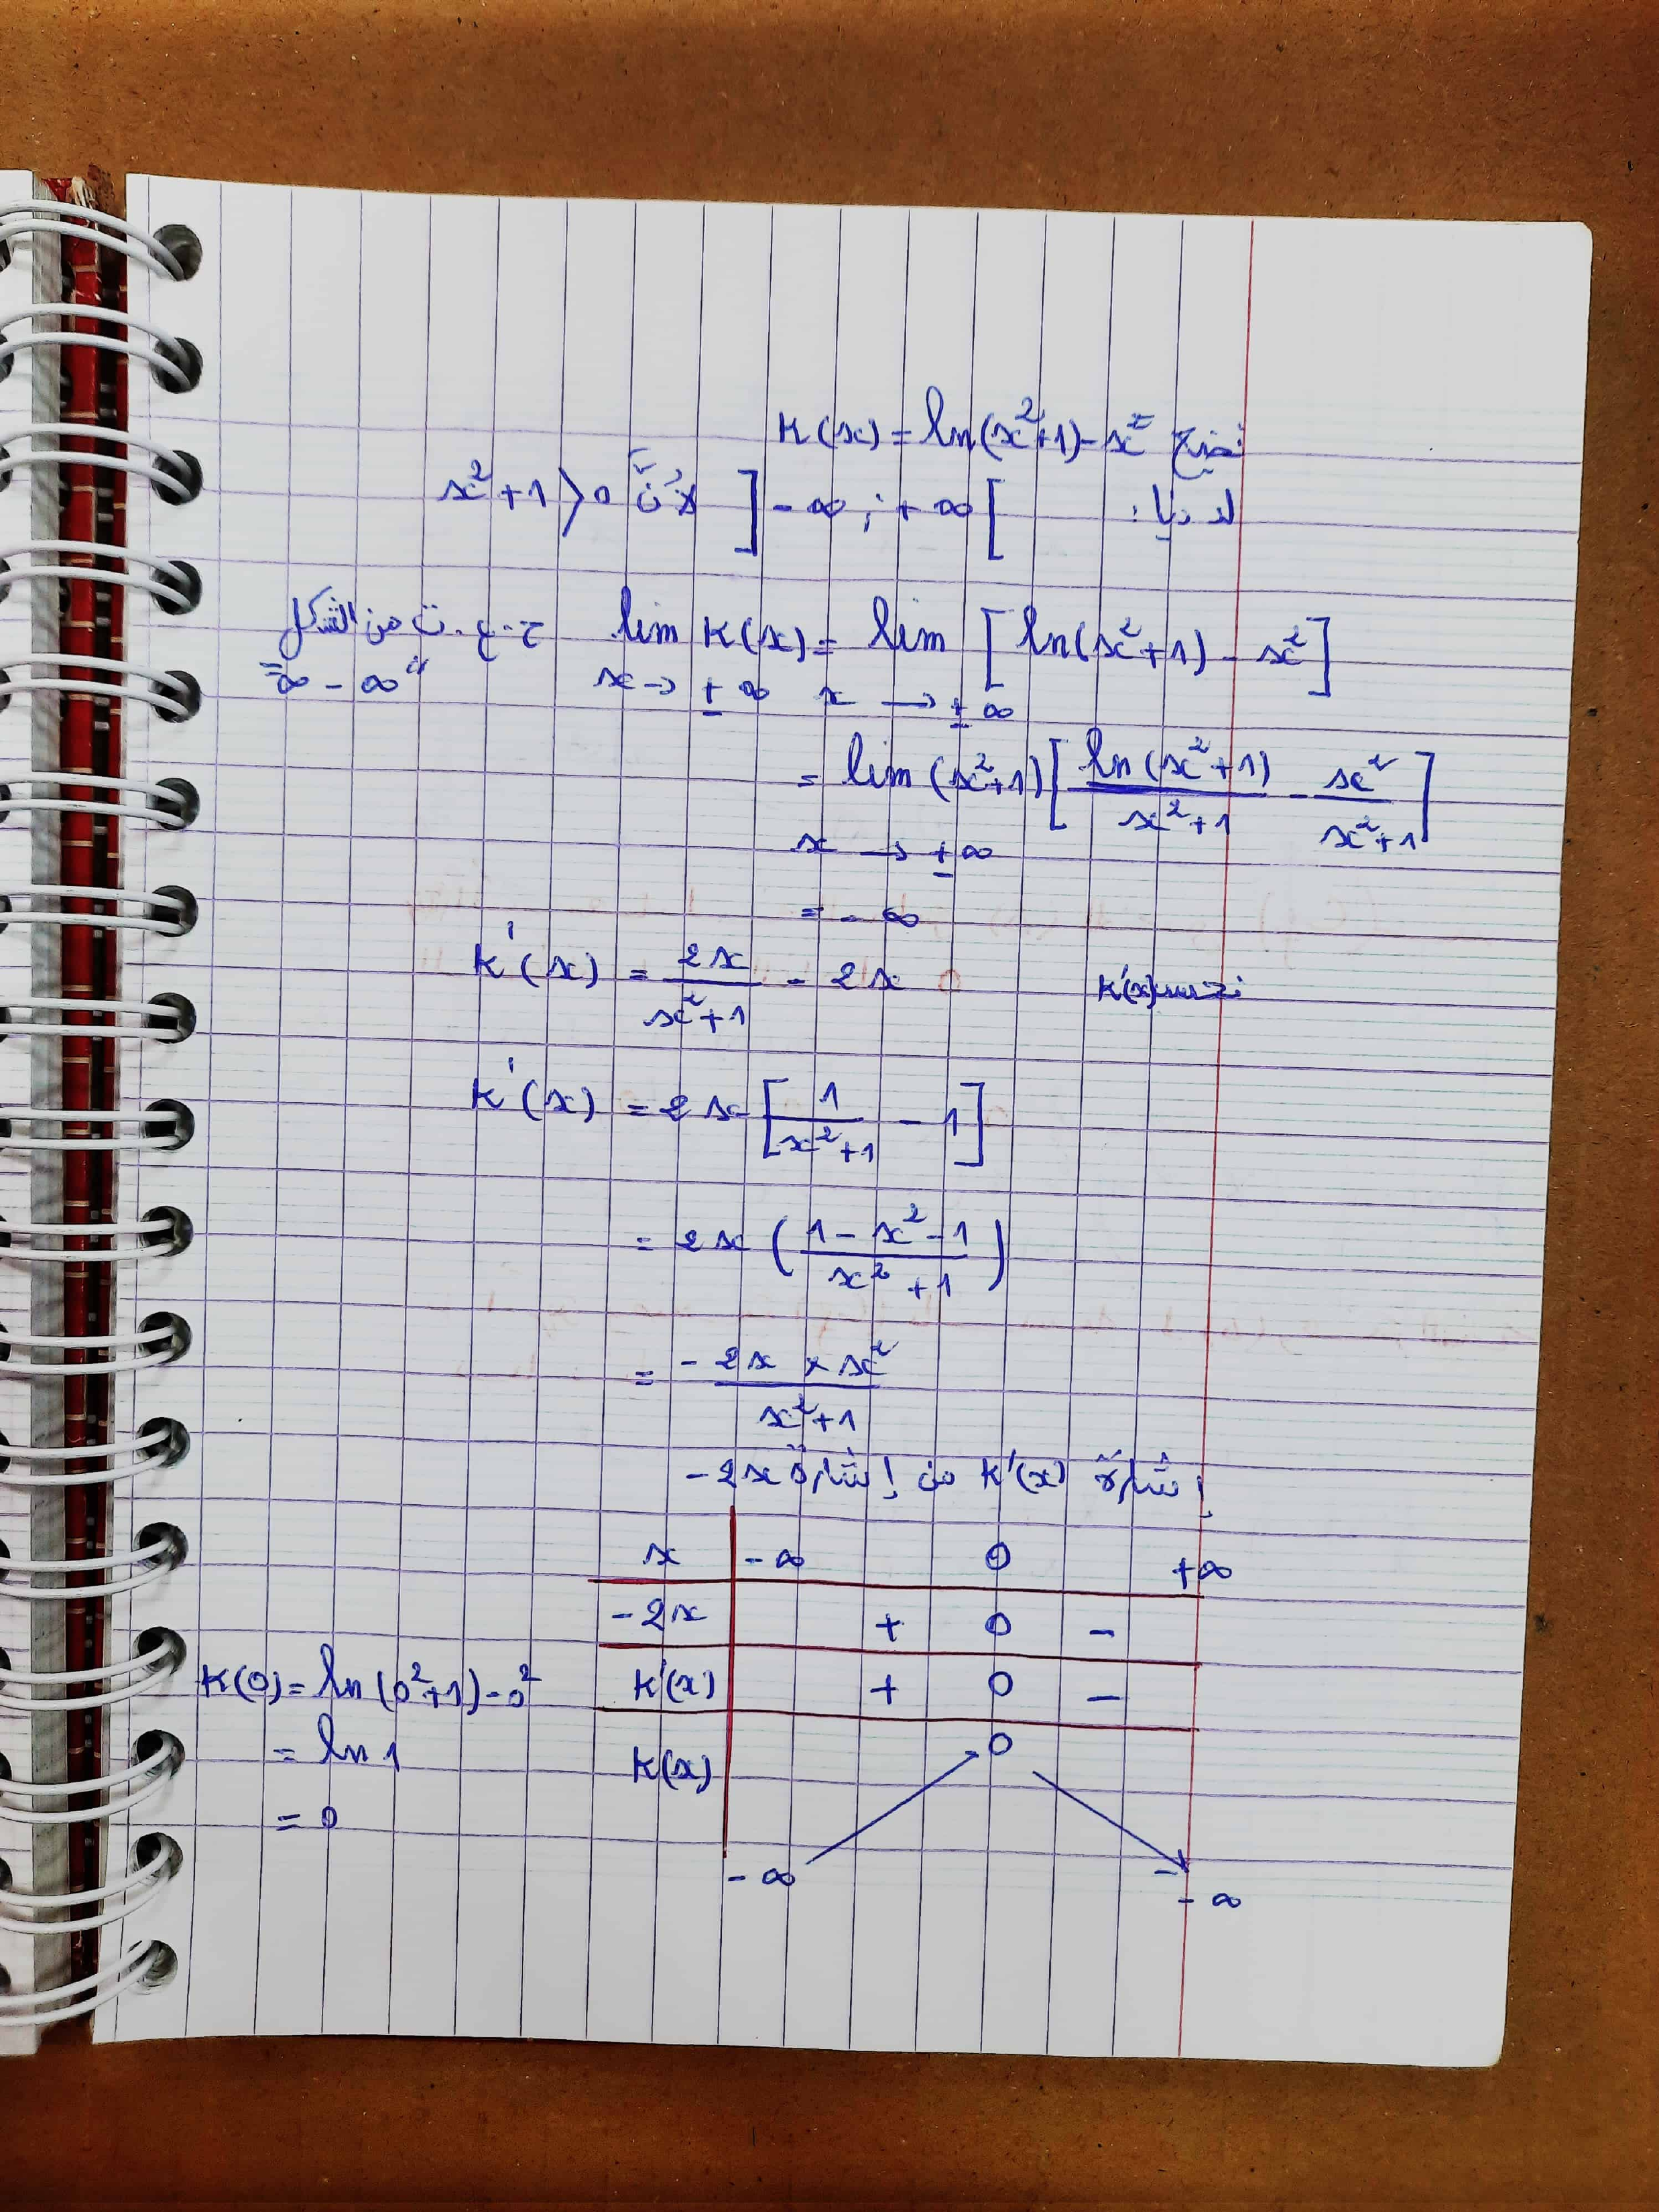 نضع K(x) = ln(x²+1) - x²
لدينا: ]-∞ ; +∞[ لأنّ x²+1 > 0
lim K(x) = lim [ln(x²+1) - x²] ح.ع.ت من الشكل
x → ±∞ x → ±∞ "∞ - ∞"
= lim (x²+1) [ln(x²+1)/(x²+1) - x²/(x²+1)]
x → ±∞
= -∞
K'(x) = 2x/(x²+1) - 2x
K'(x) = 2x [1/(x²+1) - 1]
= 2x ((1 - x² - 1)/(x²+1))
= (-2x × x²)/(x²+1)
إشارة K'(x) من إشارة -2x
x -∞ 0 +∞
-2x + 0 -
K'(x) + 0 -
K(x) -∞ 0 -∞
K(0) = ln(0²+1) - 0²
= ln 1
= 0